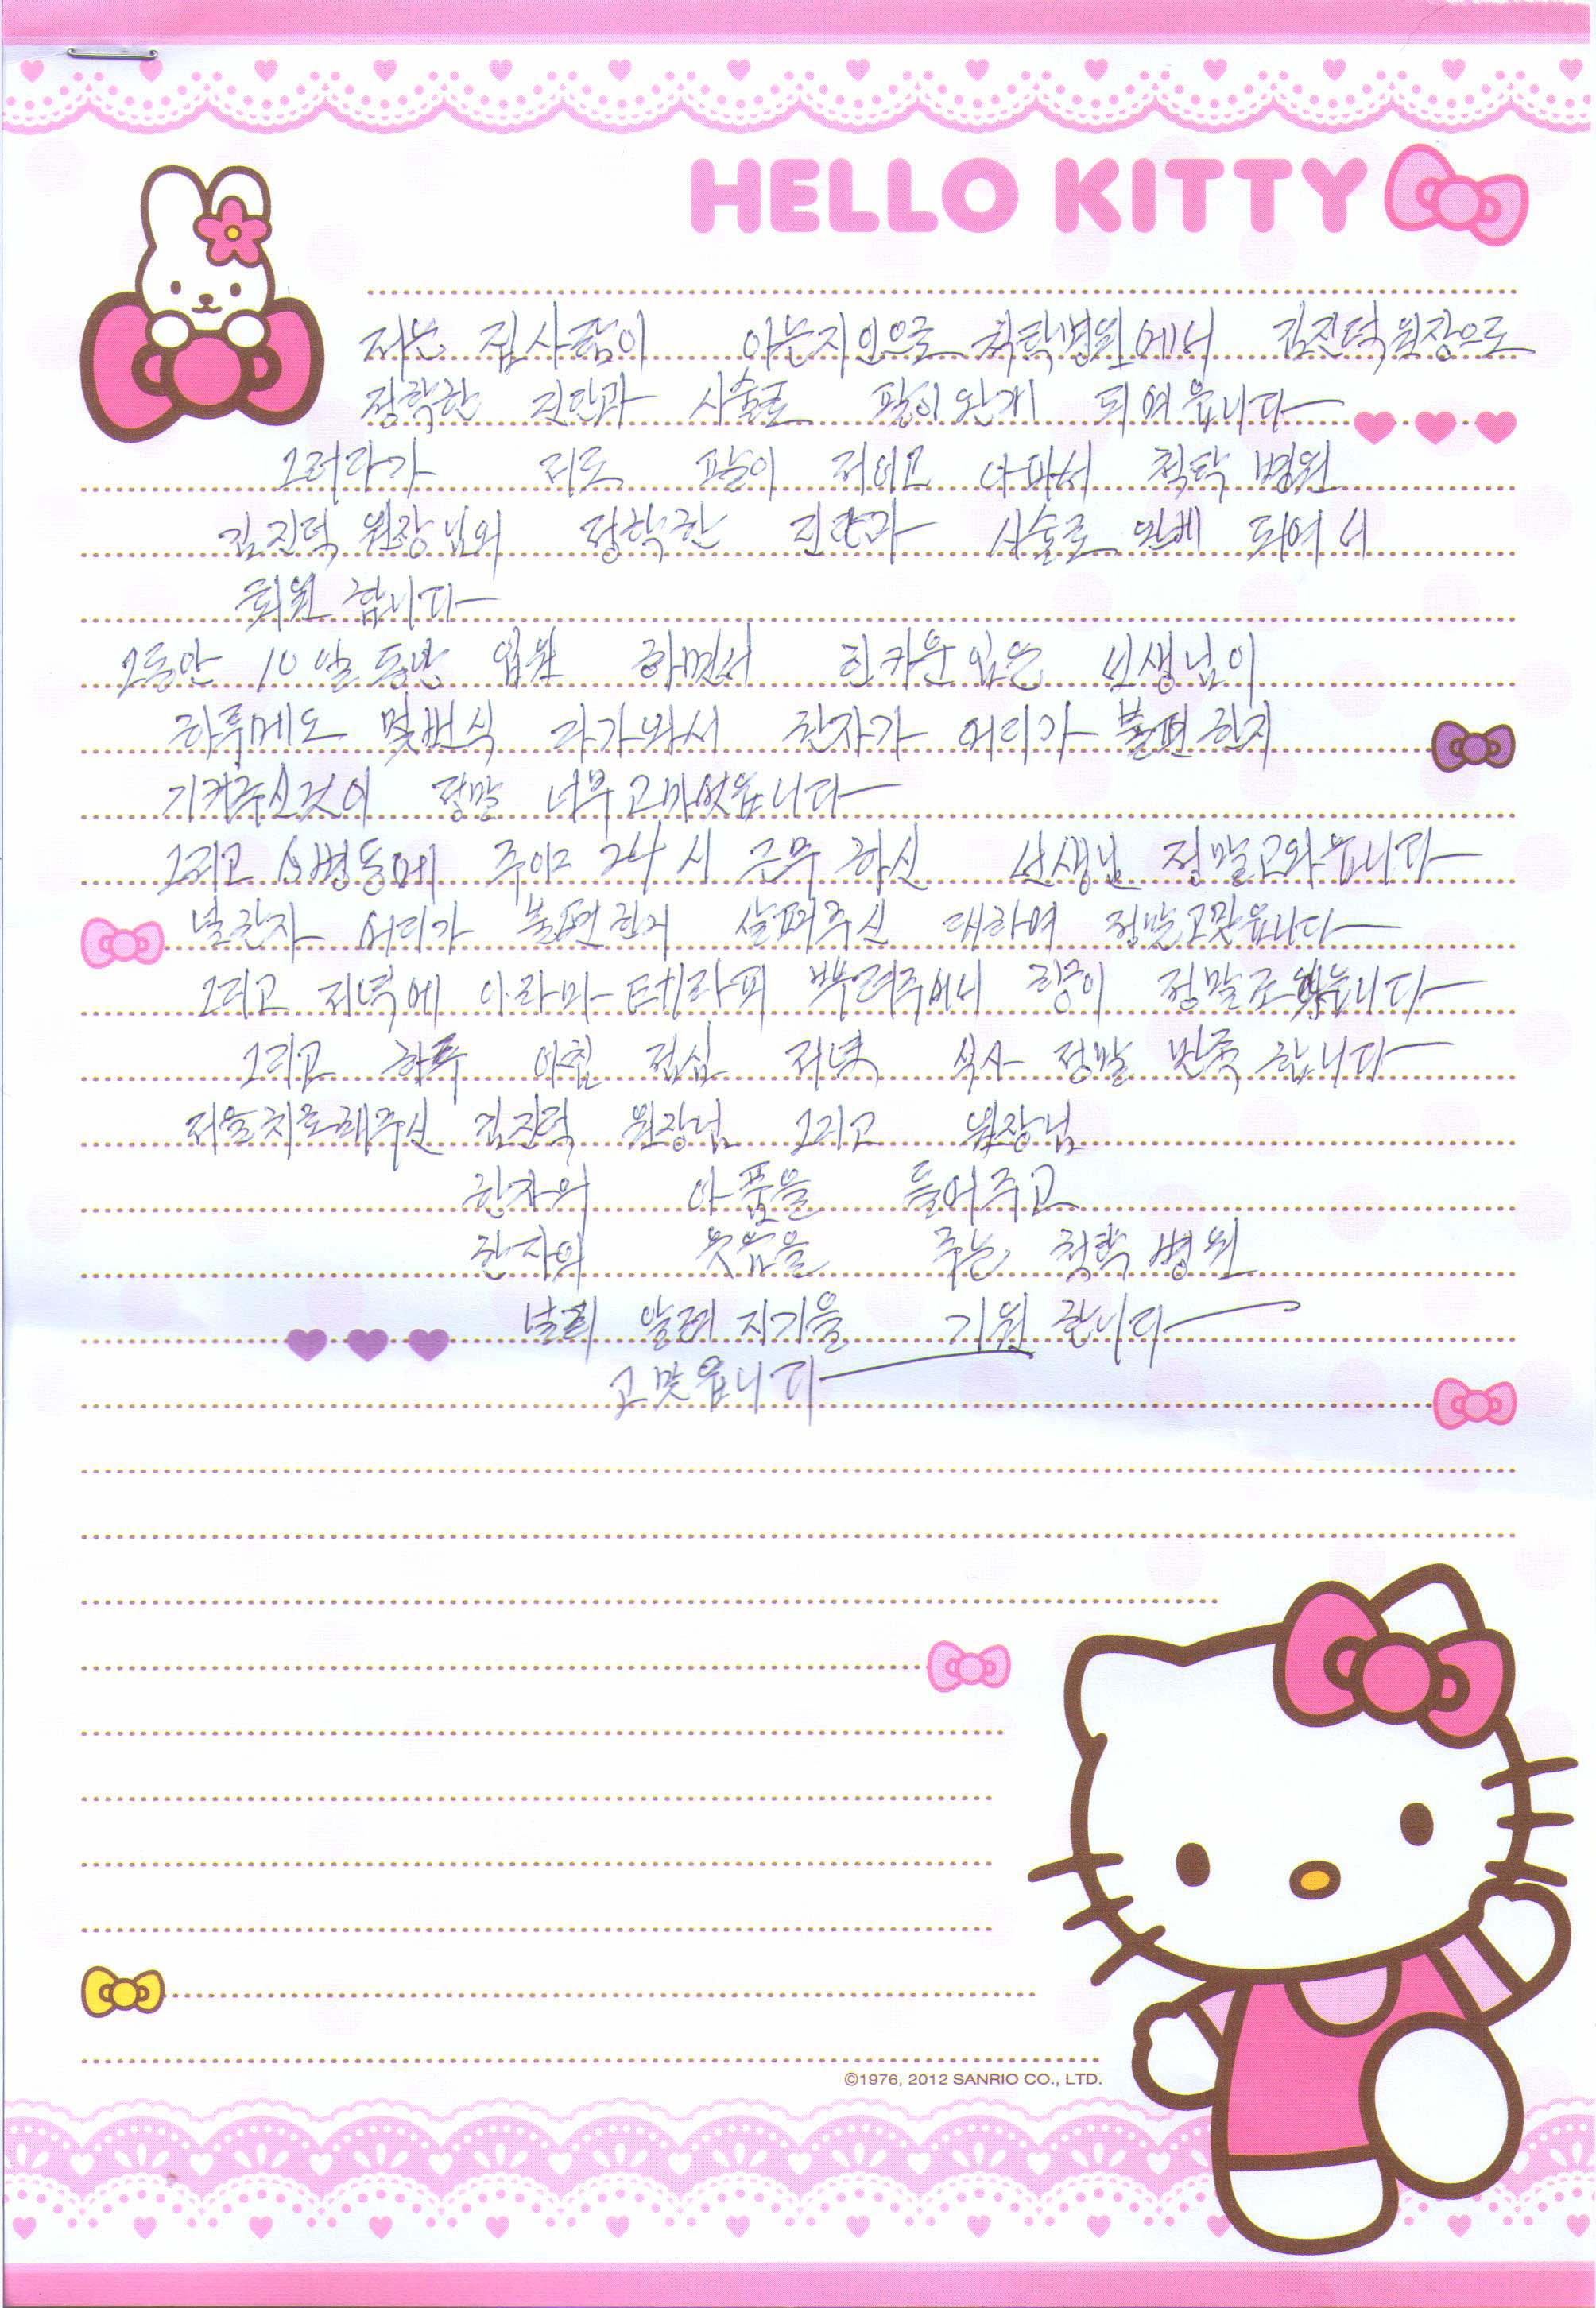 HELLO KITTY
저는 집사람이 아는지인으로 척탁병원에서 김진덕원장으로
정확한 진단과 시술로 팔이완계 되여읍니다
그러다가 저도 팔이 저이고 아파서 척탁 병원
김진덕 원장님의 정확한 진단과 시술로 완베 되여서
퇴원 합니다
그동안 10일 동안 입원 하면서 한카운있은 선생님이
하루메도 몇번식 다가와서 환자가 어디가 불편한지
지켜주신것이 정말 너무고마웠읍니다
그리고 병동에 주야 24시 근무 하신 선생님 정말고와읍니다
환자 어디가 불편한지 살펴주신 대하여 정말고맛읍니다
그리고 저녁에 아라마 테라피 뿌려주어니 향이 정말로 니다
그리고 하루 아침 점심 저녁 식사 정말 만족 합니다
저을치료해주신 김진덕 원장님 그리고 원장님
환자의 아품을 들어주고
환자의 웃음을 주는 척탁 병원
널리 알려 지기을 기원 합니다
고맛읍니다
©1976, 2012 SANRIO CO., LTD.